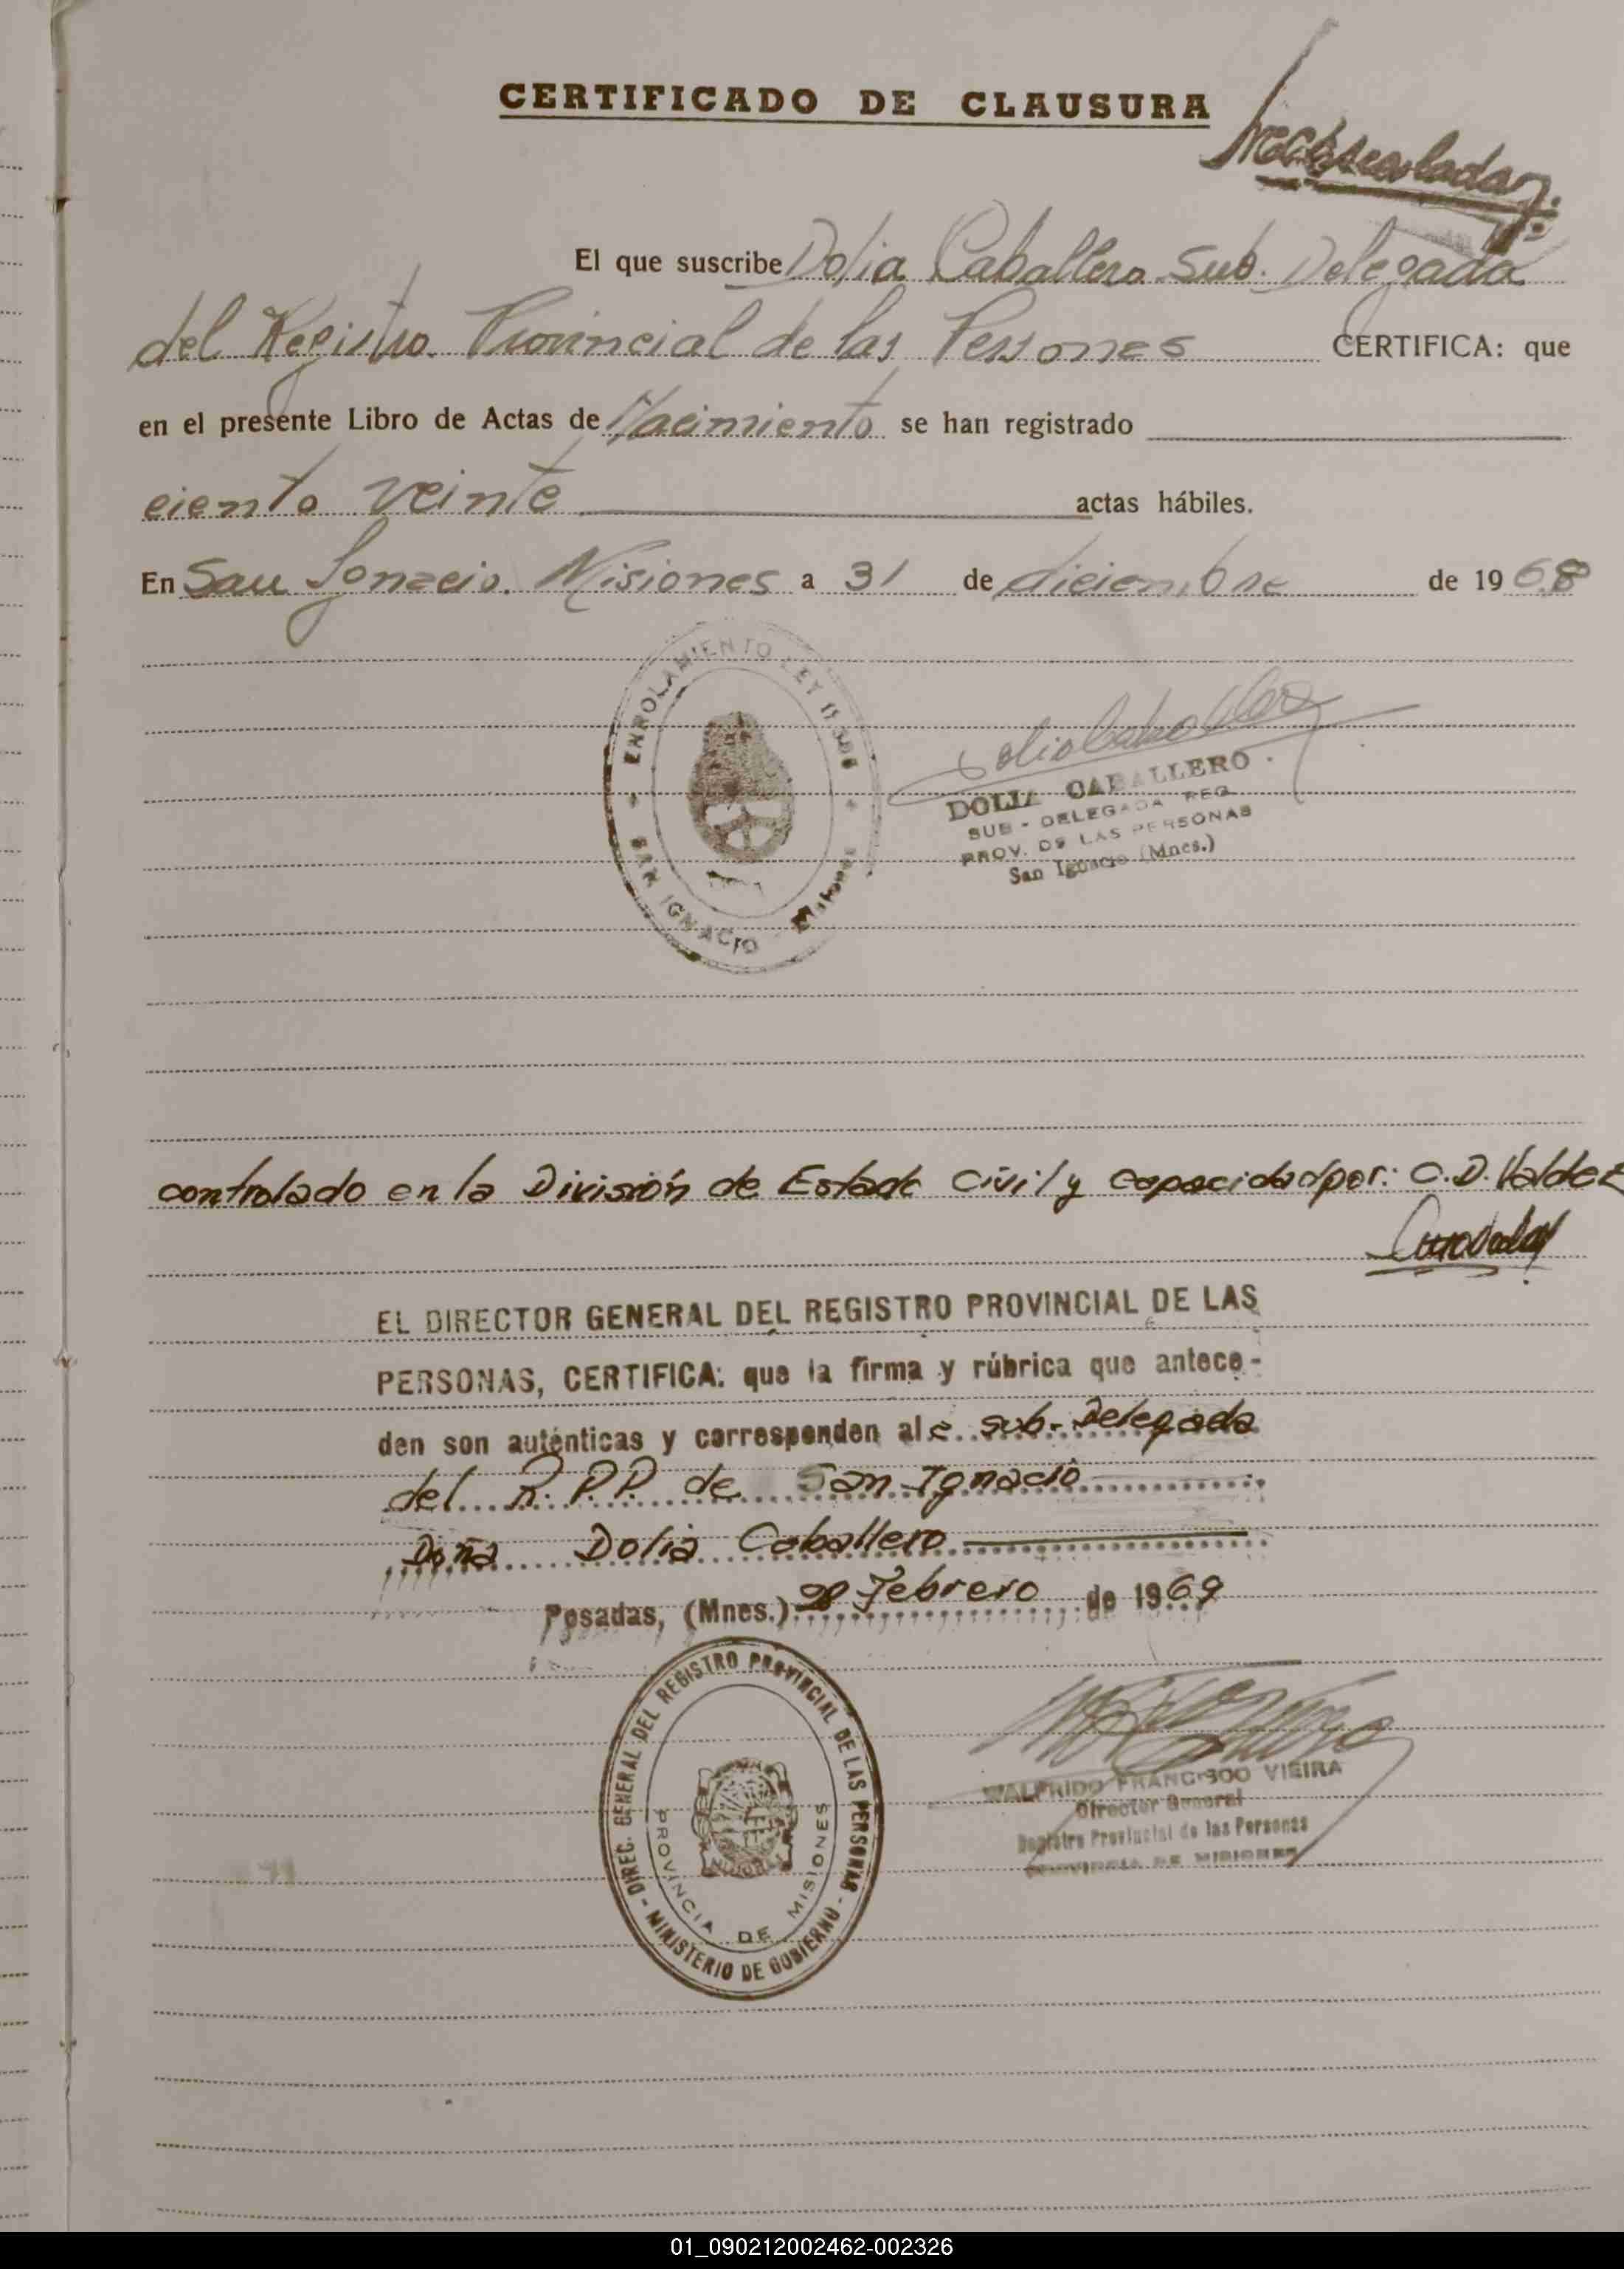 CERTIFICADO DE CLAUSURA
El que suscribe Dolia Caballero Sub. Delegada
del Registro Provincial de las Personas CERTIFICA: que
en el presente Libro de Actas de Nacimiento se han registrado
ciento veinte actas hábiles.
En San Ignacio. Misiones a 31 de diciembre de 1968
ENROLAMIENTO LEY
SAN IGNACIO Misiones
DOLIA CABALLERO
SUB - DELEGADA REG
PROV. DE LAS PERSONAS
San Ignacio (Mnes.)
controlado en la División de Estado Civil y Capacidad por: C.D. Valdez
EL DIRECTOR GENERAL DEL REGISTRO PROVINCIAL DE LAS
PERSONAS, CERTIFICA: que la firma y rúbrica que antece-
den son auténticas y corresponden al a sub-Delegada
del R.P.P. de San Ignacio
Doña Dolia Caballero
Posadas, (Mnes.) 28 Febrero de 1969
DIREC. GENERAL DEL REGISTRO PROVINCIAL DE LAS PERSONAS - MINISTERIO DE GOBIERNO -
PROVINCIA DE MISIONES
WALFRIDO FRANCISCO VIEIRA
Director General
Registro Provincial de las Personas
PROVINCIA DE MISIONES
01_090212002462-002326